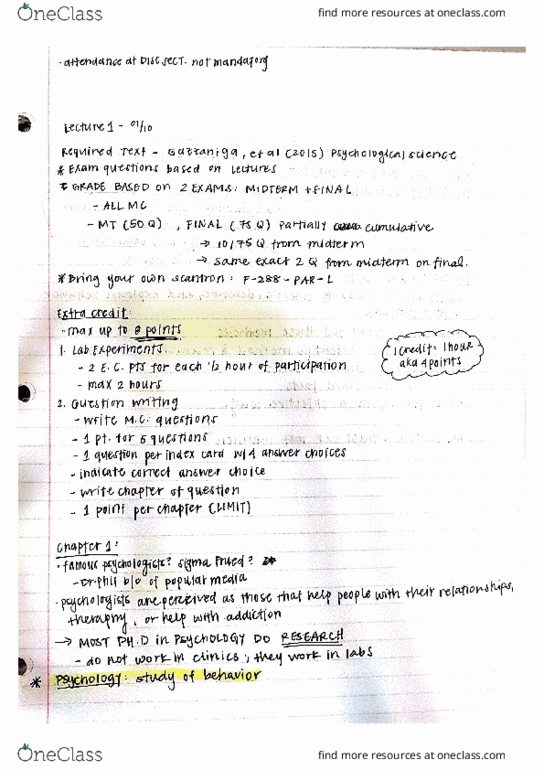 OneClass
find more resources at oneclass.com
· attendance at DISC SECT. not mandatory
Lecture 1 - 01/10
Required Text - Gazzaniga, et al (2015) Psychological science
* Exam questions based on lectures
* GRADE BASED ON 2 EXAMS: MIDTERM + FINAL
- ALL MC
- MT (50 Q) , FINAL (75 Q) partially cumulative
→ 10/75 Q from midterm
→ same exact 2 Q from midterm on final.
* Bring your own scantron : F-288-PAR-L
Extra credit:
- max up to 8 points
1. Lab Experiments
- 2 E.C. PTS for each 1/2 hour of participation
- max 2 hours
1 credit = 1 hour
aka 4 points
2. Question writing
- write M.C. questions
- 1 pt. for 5 questions
- 1 question per index card w/ 4 answer choices
- indicate correct answer choice
- write chapter of question
- 1 point per chapter (LIMIT)
Chapter 1:
· famous psychologists? sigma frued?
- Dr. Phil b/c of popular media
· psychologists are perceived as those that help people with their relationships,
theraphy, or help with addiction
→ MOST PH.D in PSYCHOLOGY DO RESEARCH
- do not work in clinics, they work in labs
* Psychology: study of behavior
OneClass
find more resources at oneclass.com